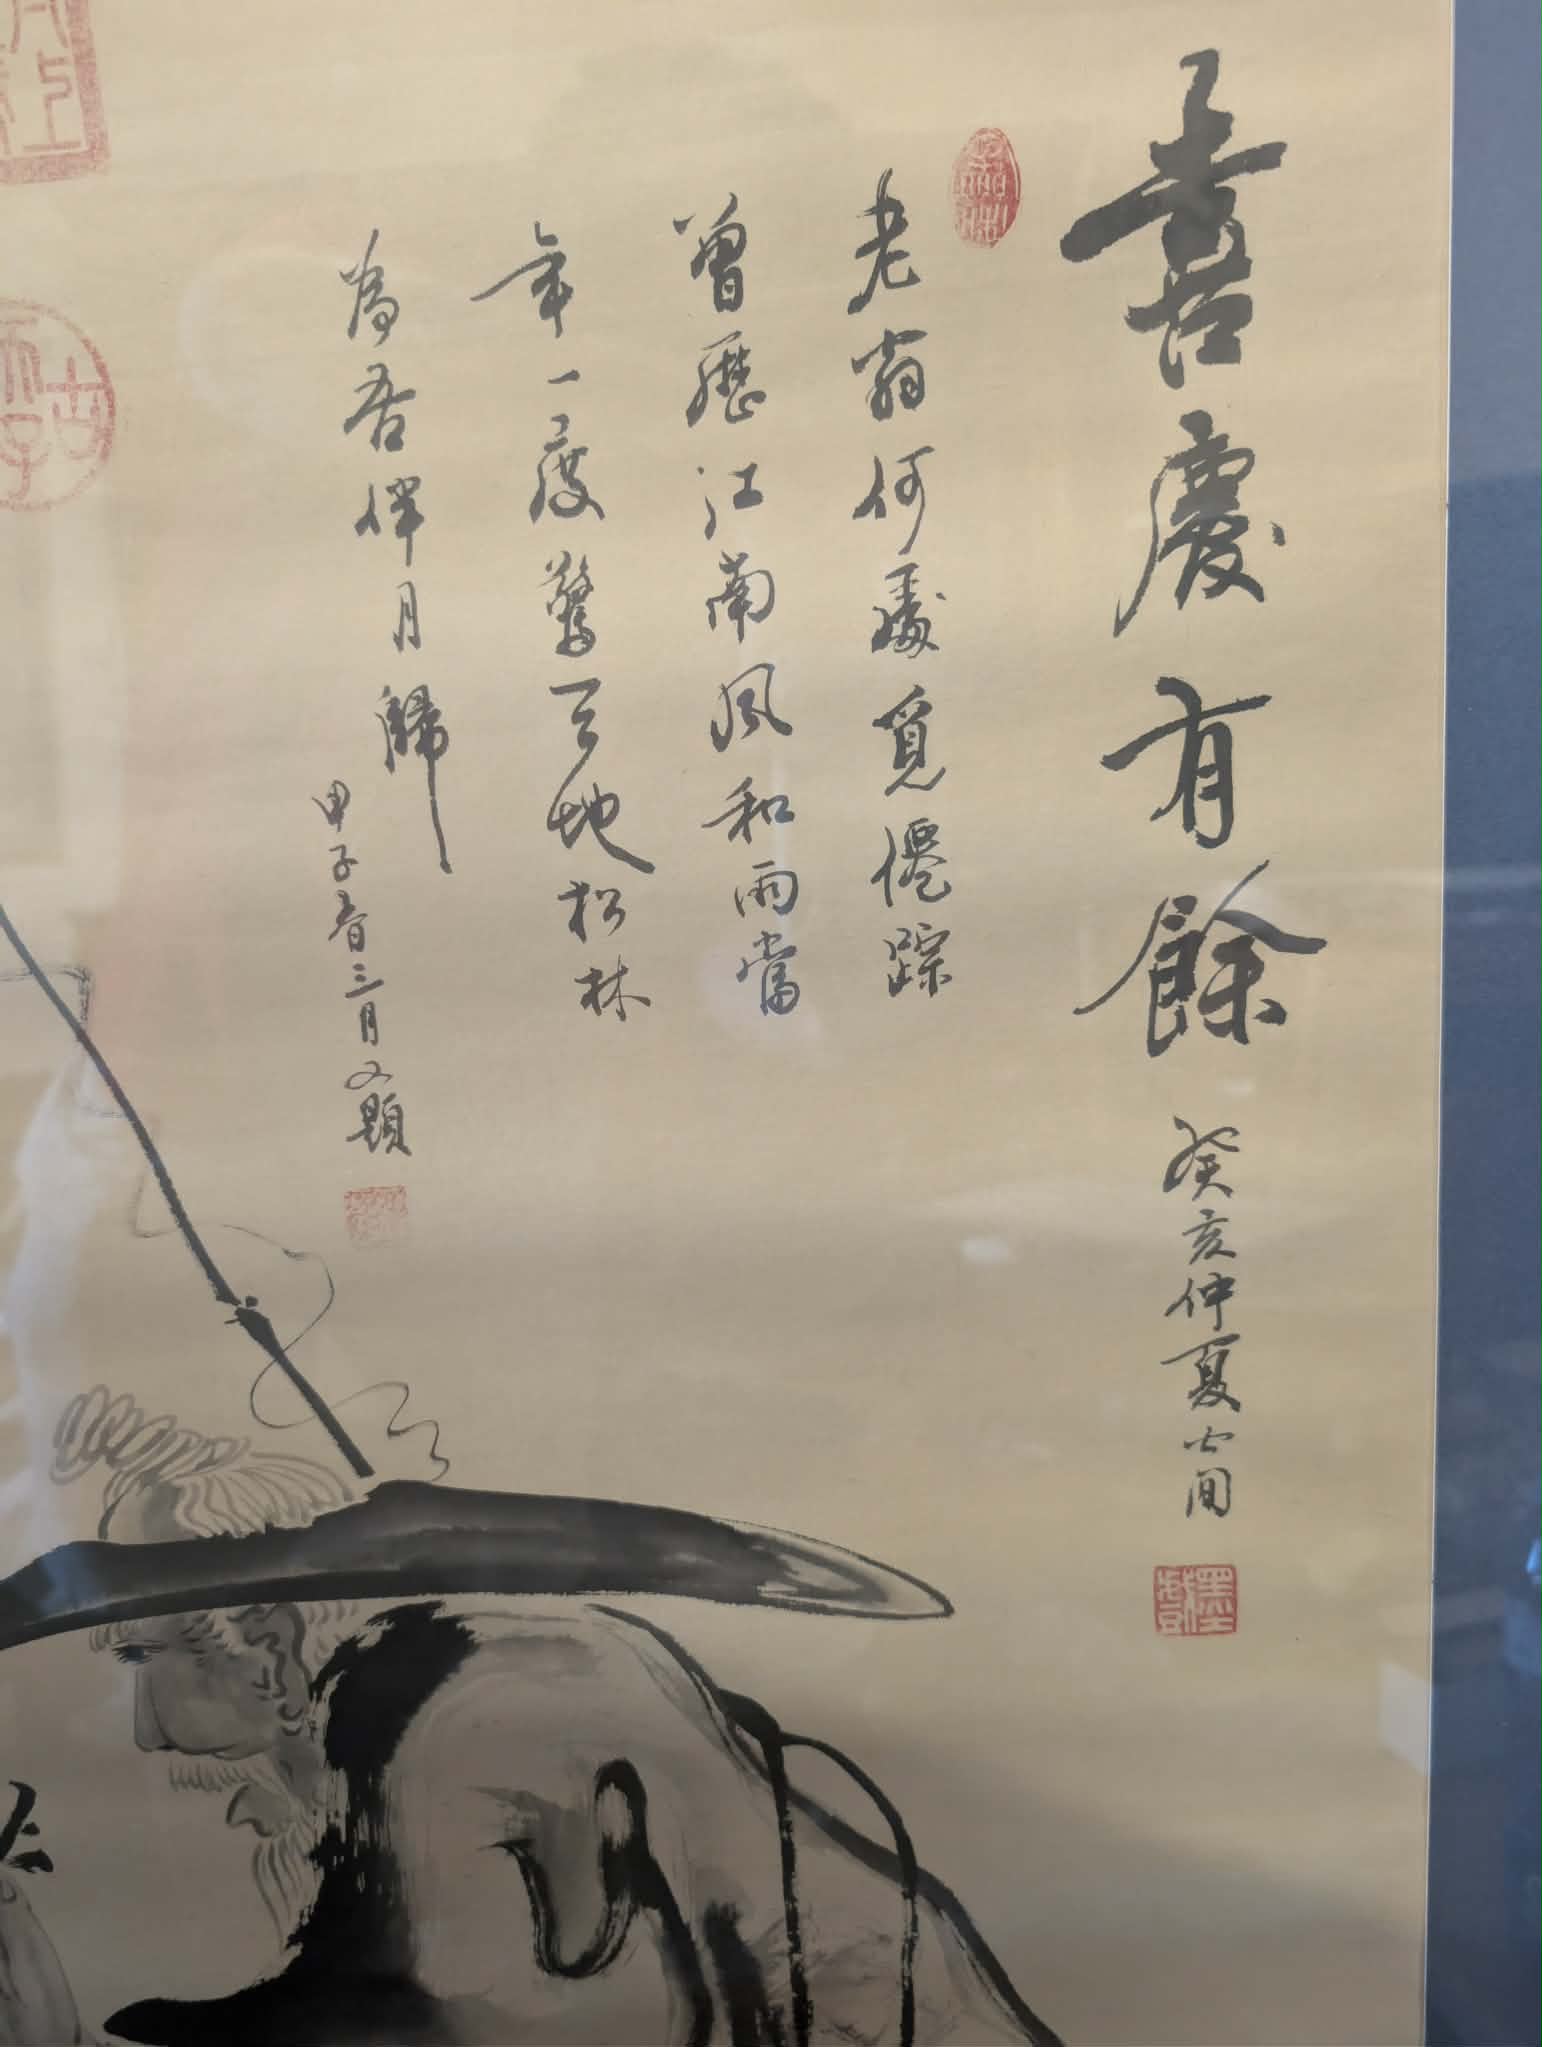 喜慶有餘
癸亥仲夏七閒
老翁何處覓僊踪
曾歷江南風和雨當
年一度驚天地松林
為吾伴月歸
甲子春三月又題